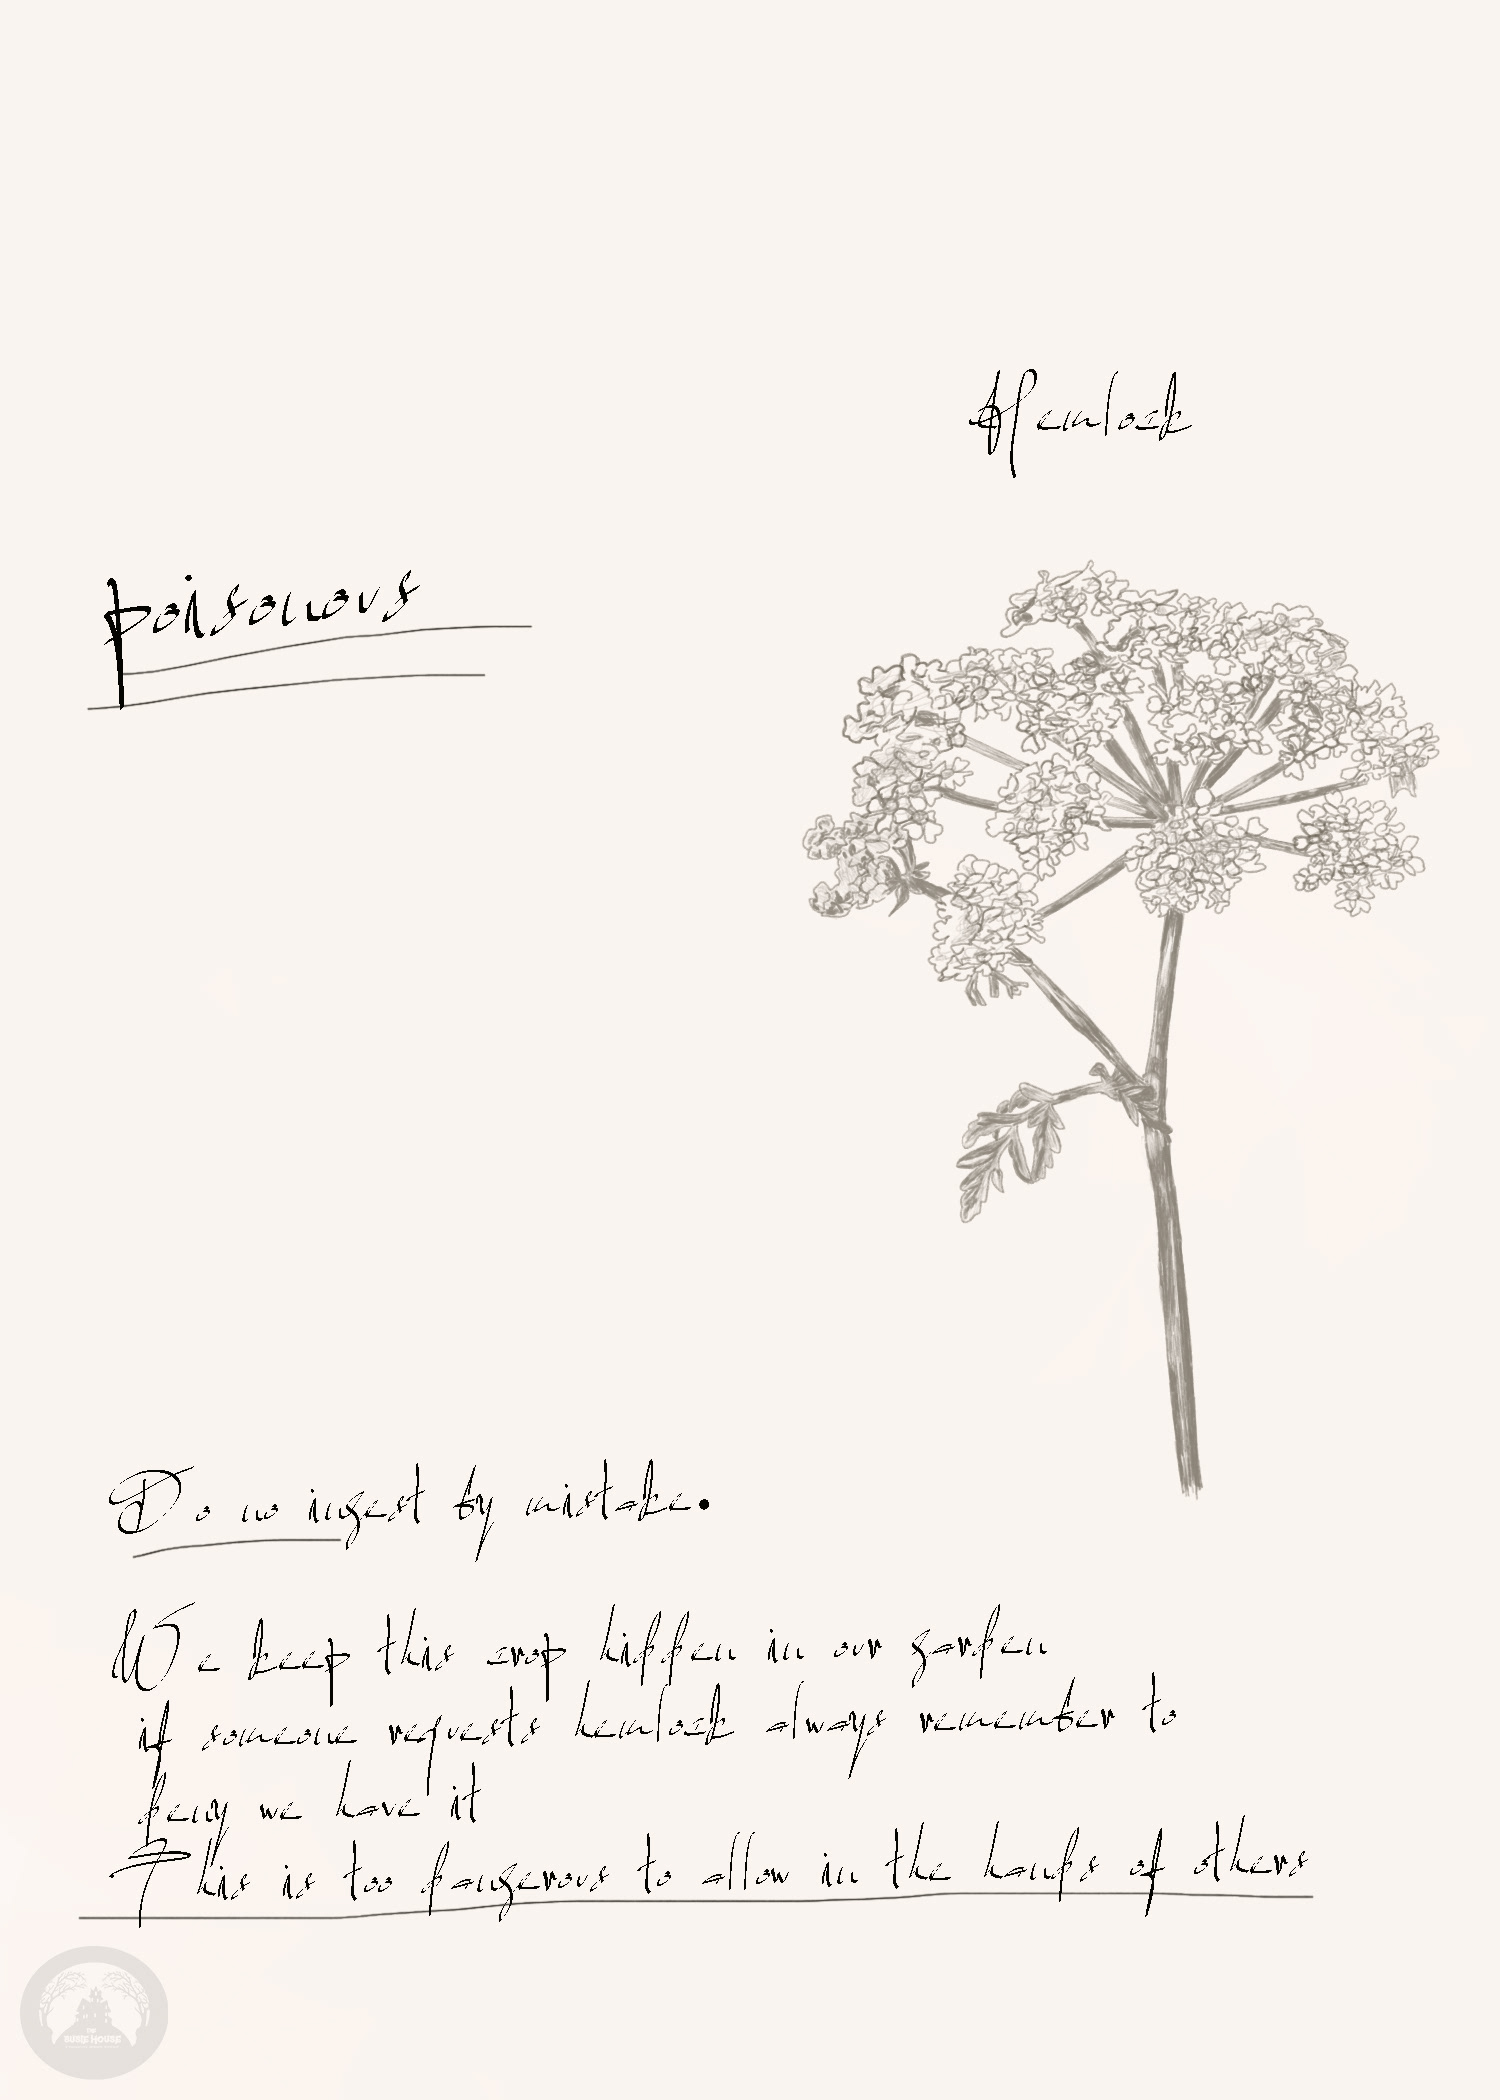 Hemlock
poisonous
Do no ingest by mistake.
We keep this crop hidden in our garden
if someone requests hemlock always remember to
deny we have it
This is too dangerous to allow in the hands of others
THE
SUSIE HOUSE